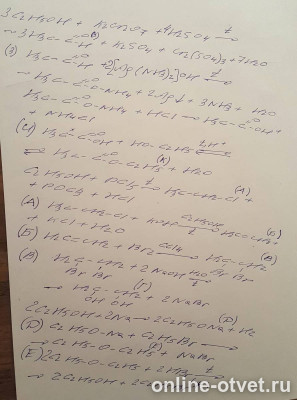 3C2H5OH + K2Cr2O7 + 4H2SO4 →t
→ 3H3C-C=O-H + K2SO4 + Cr2(SO4)3 + 7H2O
(З) H3C-C=O-H + 2[Ag(NH3)2]OH →t
→ H3C-C=O-O-NH4 + 2Ag↓ + 3NH3 + H2O
H3C-C=O-O-NH4 + HCl → H3C-C=O-OH +
+ NH4Cl
(И) H3C-C=O-OH + HO-C2H5 ⇄H+
⇄ H3C-C=O-O-C2H5 + H2O
(К)
C2H5OH + PCl5 →t H3C-CH2-Cl + (А)
+ POCl3 + HCl
(А) H3C-CH2-Cl + KOH →C2H5OH H2C=CH2 + (Б)
+ KCl + H2O
(Б) H2C=CH2 + Br2 →CCl4 H2C-CH2 (В)
Br Br
(В) H2C-CH2 + 2NaOH →H2O
Br Br
→ H2C-CH2 + 2NaBr (Г)
OH OH
2C2H5OH + 2Na → 2C2H5ONa + H2 (Д)
(Д) C2H5O-Na + C2H5Br →
→ C2H5-O-C2H5 + NaBr (Е)
(Е) C2H5-O-C2H5 + 2HBr →t
online-otvet.ru